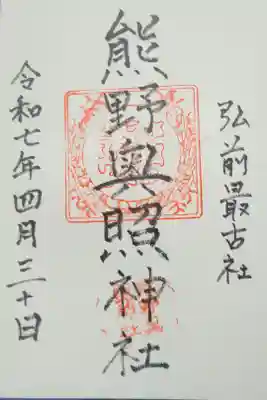 弘前最古社
熊野奥照神社
令和七年四月三十日